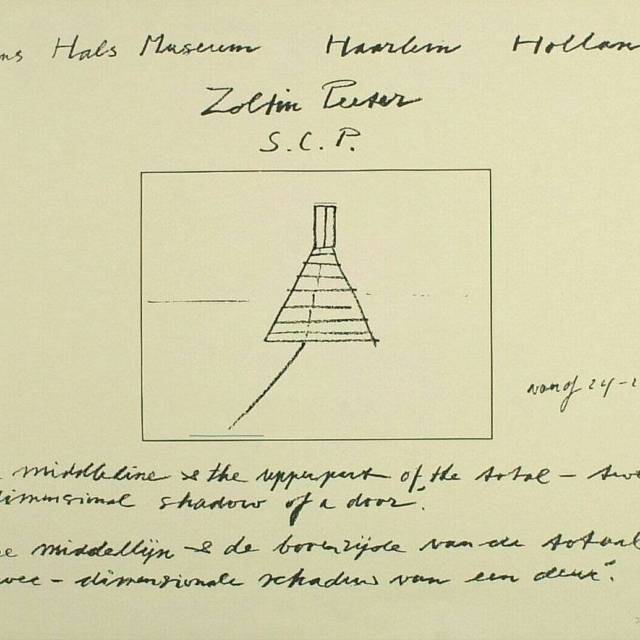 ns Hals Museum Haarlem Hollan
Zoltin Peeter
S.C.P.
vanaf 24-2
middleline & the upperpart of the total - two
dimensional shadow of a door".
ee middellijn & de bovenzijde van de totaal
wee - dimensionale schaduw van een deur".